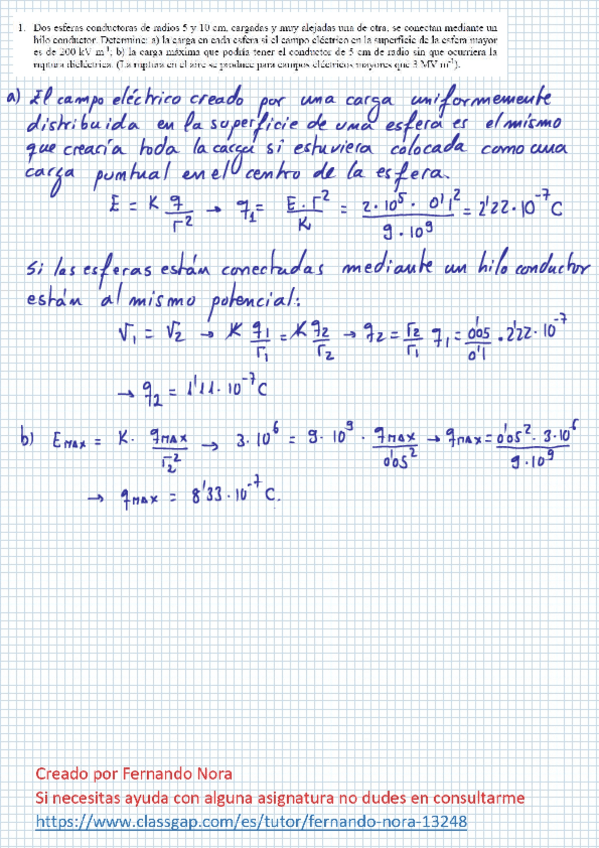 1. Dos esferas conductoras de radios 5 y 10 cm, cargadas y muy alejadas una de otra, se conectan mediante un
hilo conductor. Determine: a) la carga en cada esfera si el campo eléctrico en la superficie de la esfera mayor
es de 200 kV m⁻¹; b) la carga máxima que podría tener el conductor de 5 cm de radio sin que ocurriera la
ruptura dieléctrica. (La ruptura en el aire se produce para campos eléctricos mayores que 3 MV m⁻¹).
a) El campo eléctrico creado por una carga uniformemente
distribuida en la superficie de una esfera es el mismo
que crearía toda la carga si estuviera colocada como una
carga puntual en el centro de la esfera.
E = K q/r² → q₁ = E·r²/K = 2·10⁵·0'1²/9·10⁹ = 2'22·10⁻⁷ C
Si las esferas están conectadas mediante un hilo conductor
están al mismo potencial:
V₁ = V₂ → K q₁/r₁ = K q₂/r₂ → q₂ = r₂/r₁ q₁ = 0'05/0'1 · 2'22·10⁻⁷
→ q₂ = 1'11·10⁻⁷ C
b) E MAX = K · q MAX/r₂² → 3·10⁶ = 9·10⁹ · q MAX/0'05² → q MAX = 0'05²·3·10⁶/9·10⁹
→ q MAX = 8'33·10⁻⁷ C.
Creado por Fernando Nora
Si necesitas ayuda con alguna asignatura no dudes en consultarme
https://www.classgap.com/es/tutor/fernando-nora-13248